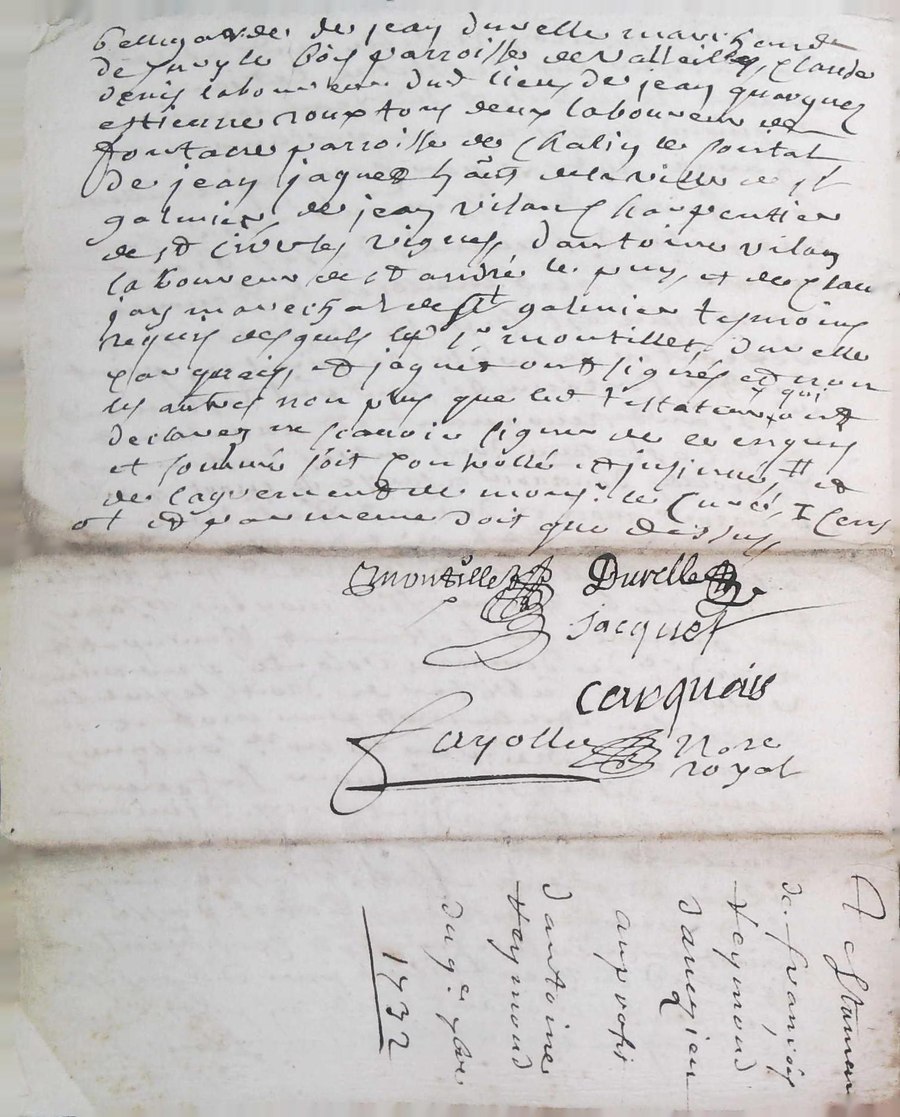 bellegarde de jean Duvelle marchand
de paroisse de Valleille, Claude
denis laboureur dud lieu, de jean quarques
estienne roux tous deux laboureur de
fontane parroisse de Chalin le contal
de jean jaques hãns de la ville de St
galmier, de jean vilan Charpentier
de St les vignes, dantoine vilan
laboureur de St andré le puy, et de Clau
jay marechal de St galmier tesmoins
requis desquels led Sr montillet, Duvelle
Carquais, et jaquet ont signés et non
les autres non plus que led testateur qui ont
declarez ne scavoir signer de ce enquis
et sommé soit controllé et insinué et
de lagrement de monsr le Curé,
et par meme doit que dessus
montillet Duvelle
Jacquet
Carquais
fayolle Nore
royal
Testamen
de françois
Reymond
dancyien
au profit
dantoine
Reymond
du 9e xbre
1732